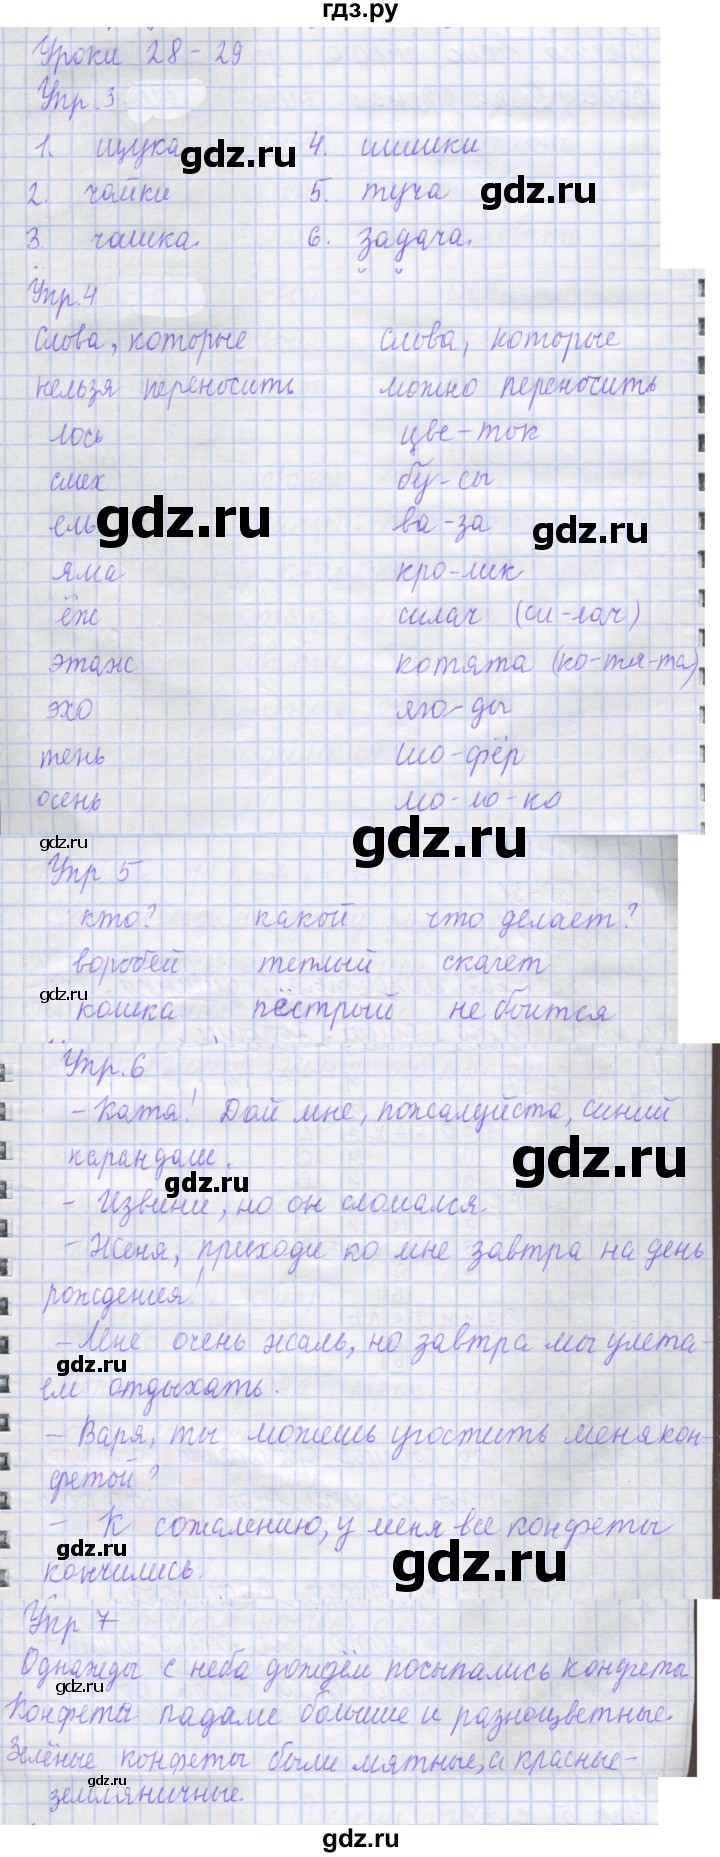 гдз.ру
Уроки 28-29
Упр.3
1. щука 4. шишки
gdz.ru
2. чашки 5. туча
gdz.ru
3. чашка. 6. задача.
Упр.4
Слова, которые Слова, которые
нельзя переносить можно переносить
лось цве-ток
смех бу-сы
ель ва-за
gdz.ru gdz.ru
яма кро-лик
ёж силач (си-лач)
этаж котята (ко-тя-та)
эхо яго-ды
тень шо-фёр
осень мо-ло-ко
gdz.ru gdz.ru
Упр 5
кто? какой что делает?
воробей теплый скачет
gdz.ru
кошка пёстрый не боится
Упр.6
- Катя! Дай мне, пожалуйста, синий
карандаш.
gdz.ru gdz.ru
- Извини, но он сломался.
- Женя, приходи ко мне завтра на день
рождения!
- Мне очень жаль, но завтра мы улета-
gdz.ru
ем отдыхать.
- Варя, ты можешь угостить меня кон-
фетой?
- К сожалению, у меня все конфеты
gdz.ru gdz.ru
кончились.
Упр 7
Однажды с неба дождём посыпались конфеты
gdz.ru
Конфеты падали большие и разноцветные.
Зелёные конфеты были мятные, а красные-
gdz.ru
земляничные.
gdz.ru